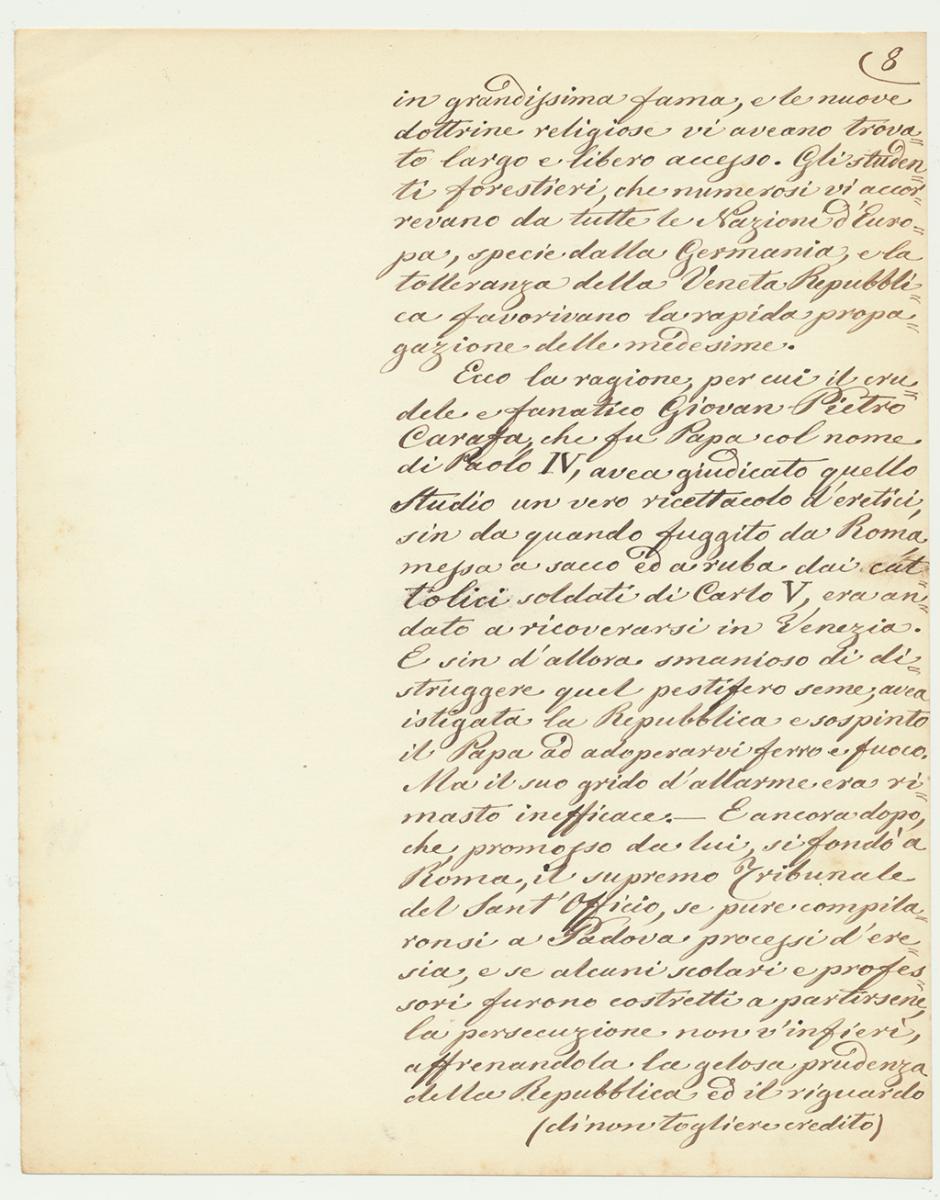 8
in grandissima fama, e le nuove
dottrine religiose vi aveano trova=
to largo e libero accesso. Gli studen=
ti forestieri, che numerosi vi accor=
revano da tutte le Nazioni d'Euro=
pa, specie dalla Germania, e la
tolleranza della Veneta Repubbli=
ca favorivano la rapida propa=
gazione delle medesime.
Ecco la ragione, per cui il cru=
dele e fanatico Giovan Pietro
Carafa, che fu Papa col nome
di Paolo IV, avea giudicato quello
Studio un vero ricettacolo d'eretici,
sin da quando fuggito da Roma,
messa a sacco ed a ruba dai cat=
tolici soldati di Carlo V, era an=
dato a ricoverarsi in Venezia.
E sin d'allora smanioso di di=
struggere quel pestifero seme, avea
istigata la Repubblica e sospinto
il Papa ad adoperarvi ferro e fuoco.
Ma il suo grido d'allarme era ri=
masto inefficace. — E ancora dopo,
che, promosso da lui, si fondò a
Roma, il supremo Tribunale
del Sant' Officio, se pure compila=
ronsi a Padova processi d'ere=
sia, e se alcuni scolari e profes=
sori furono costretti a partirsene,
la persecuzione non v'infierì,
affrenandola la gelosa prudenza
della Repubblica ed il riguardo
(di non togliere credito)